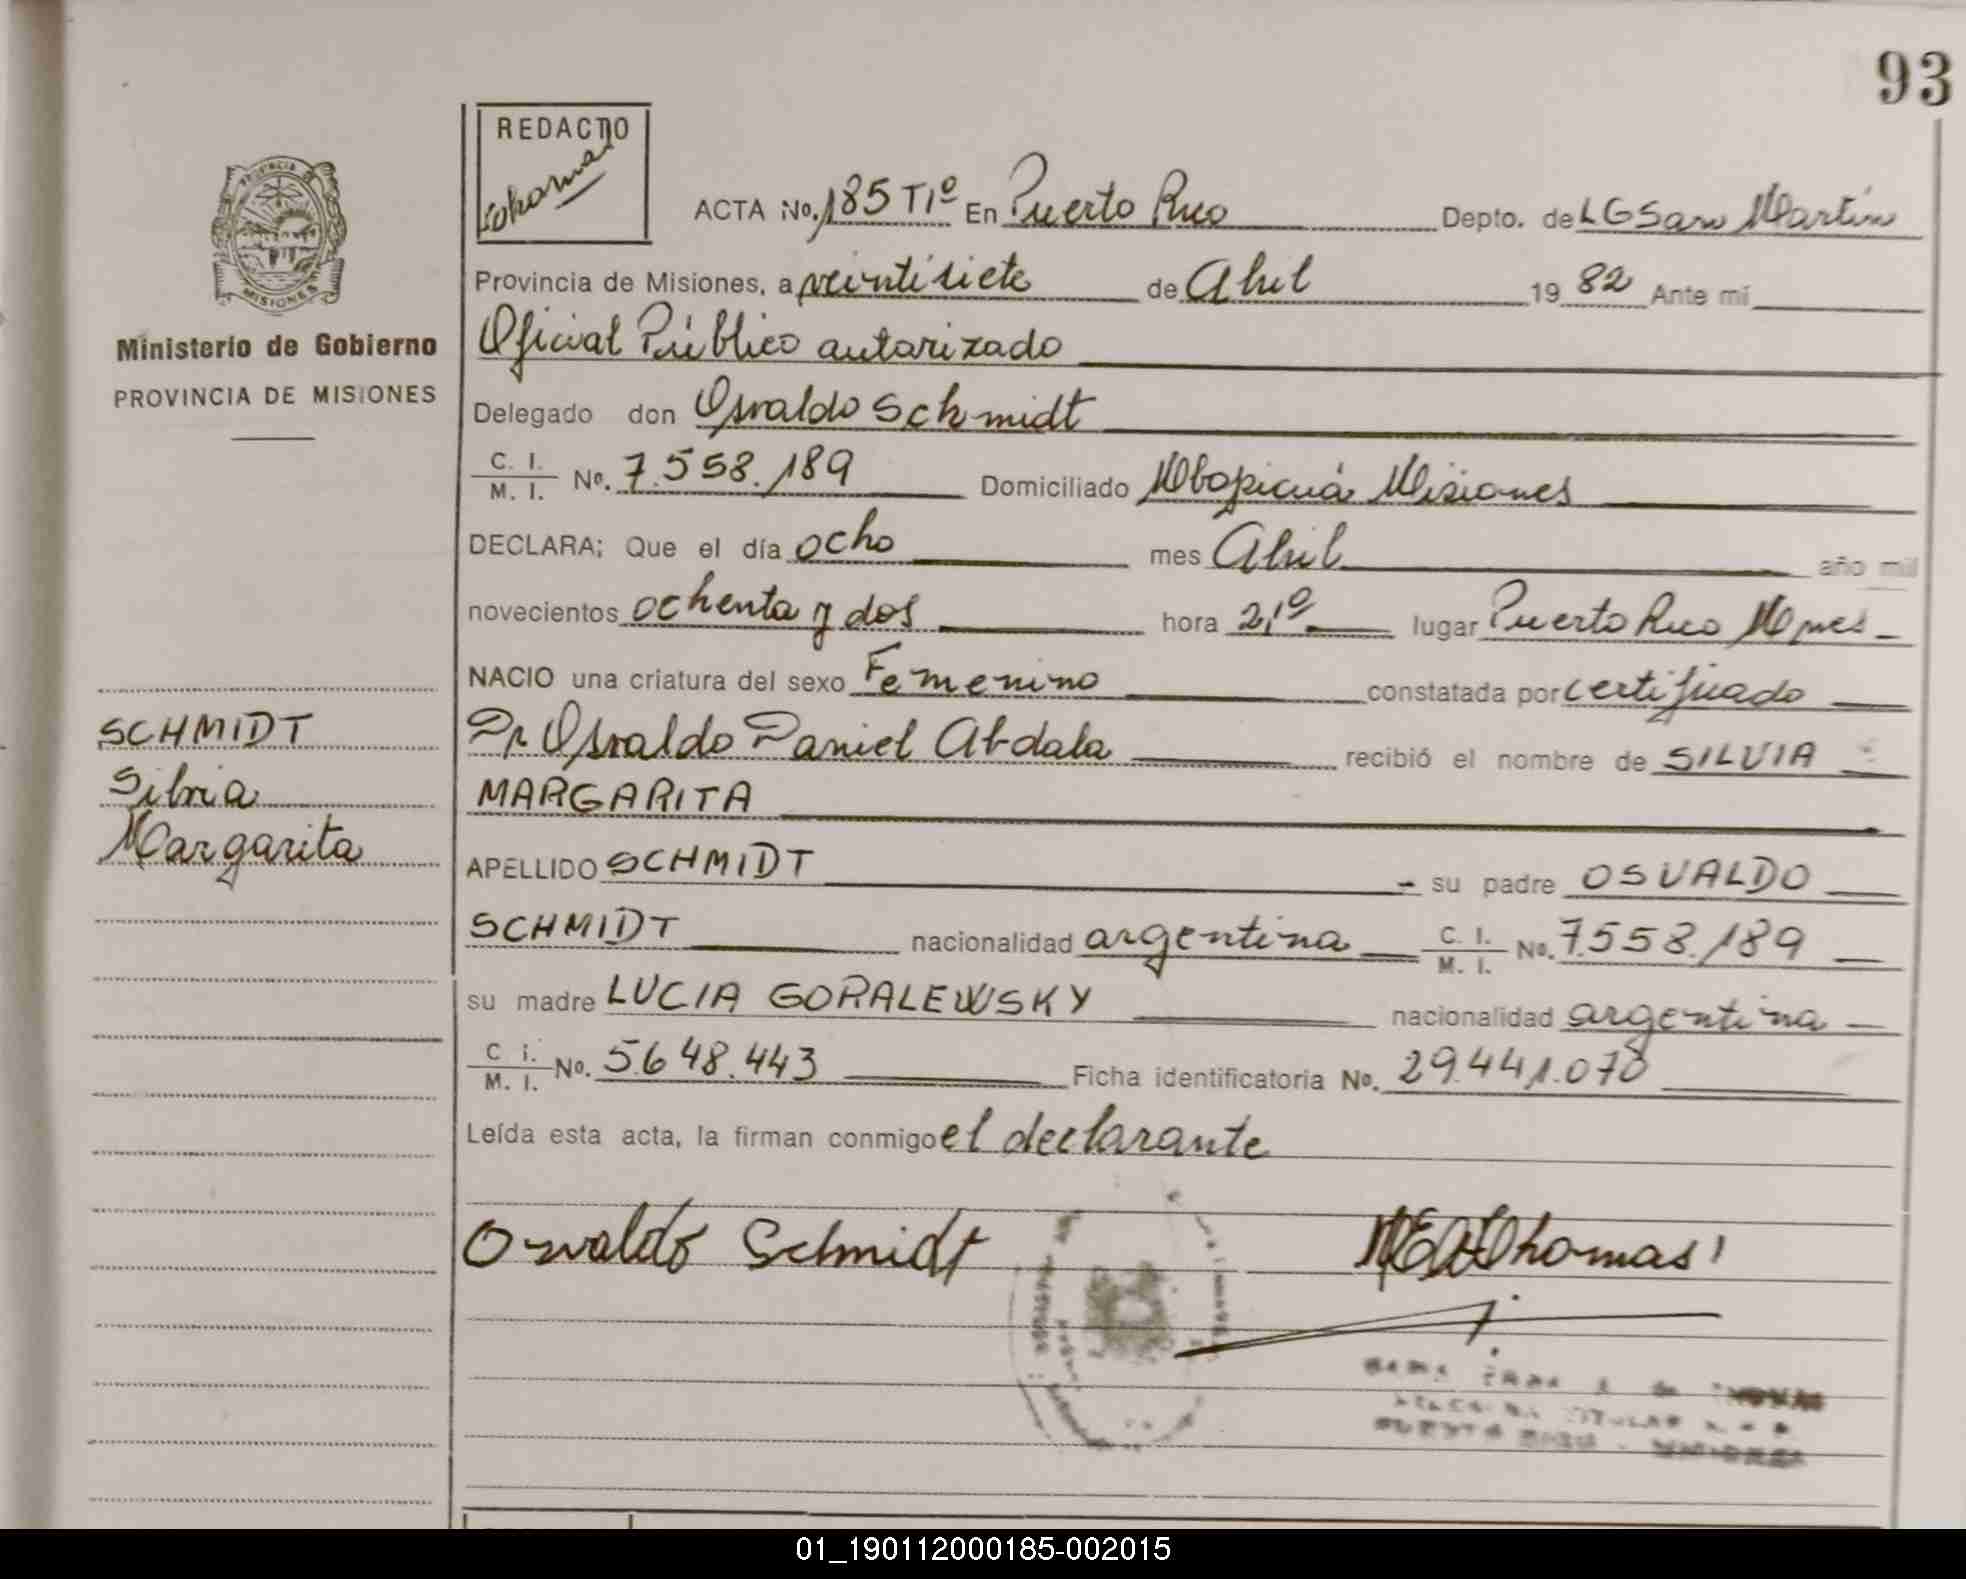 93
REDACTO
Thomas
PROVINCIA DE
MISIONES
Ministerio de Gobierno
PROVINCIA DE MISIONES
ACTA No. 185 TIº En Puerto Rico Depto. de L G San Martín
Provincia de Misiones, a veintisiete de Abril 19 82 Ante mí
Oficial Público autorizado
Delegado don Osvaldo Schmidt
C. I. / M. I. No. 7.558.189 Domiciliado Mbopicuá Misiones
DECLARA; Que el día ocho mes Abril año mil
novecientos ochenta y dos hora 21º lugar Puerto Rico Mnes
NACIO una criatura del sexo Femenino constatada por certificado
Dr Osvaldo Daniel Abdala recibió el nombre de SILVIA
MARGARITA
SCHMIDT
Silvia
Margarita
APELLIDO SCHMIDT su padre OSVALDO
SCHMIDT nacionalidad argentina C. I. / M. I. No. 7.558.189
su madre LUCIA GORALEWSKY nacionalidad argentina
C i. / M. I. No. 5.648.443 Ficha identificatoria No. 29.441.078
Leída esta acta, la firman conmigo el declarante
Osvaldo Schmidt
Thomas
TITULAR
PUERTO RICO - MISIONES
01_190112000185-002015